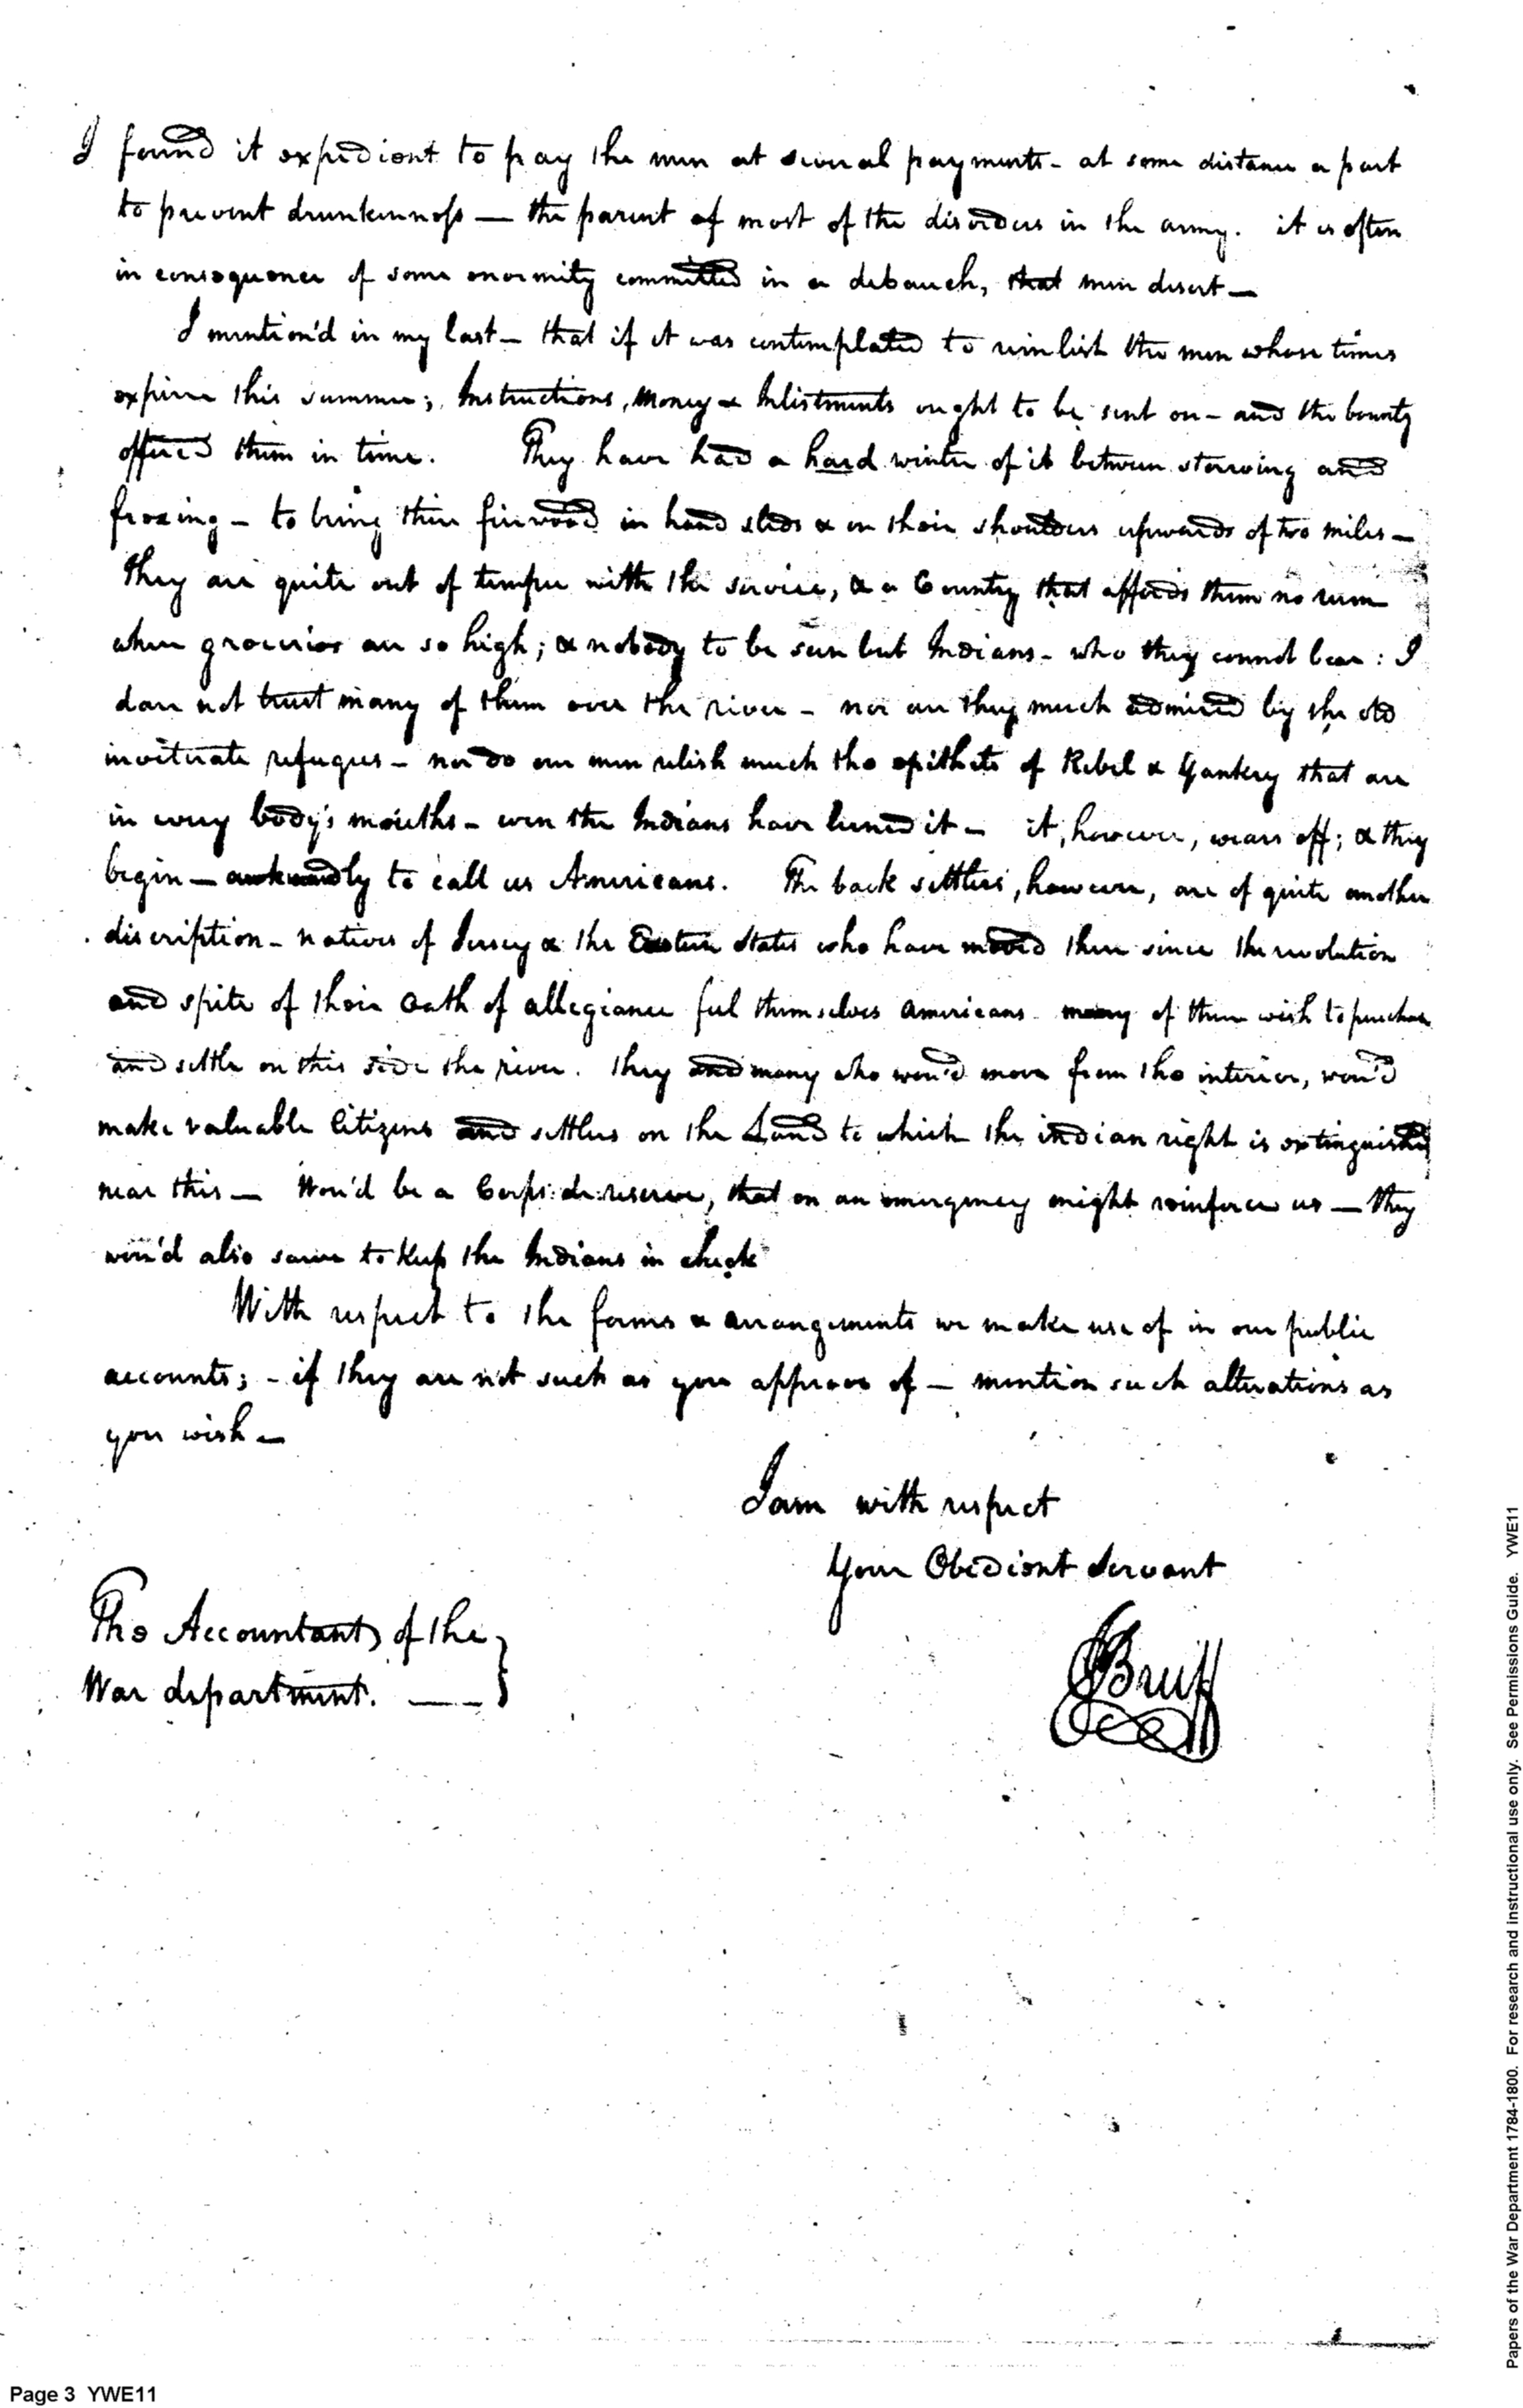 I found it expedient to pay the men at several payments - at some distance a part
to prevent drunkenness — the parent of most of the disorders in the army. it is often
in consequence of some enormity committed in a debauch, that men desert —
I mention'd in my last - that if it was contemplated to reinlist the men whose times
expire this summer; Instructions, Money & Inlistments ought to be sent on - and the bounty
offered them in time. They have had a hard winter of it between starving and
freezing - to bring their firewood in hand sleds & on their shoulders upwards of two miles -
they are quite out of temper with the service, & a Country that affords them no rum
where groceries are so high; & nobody to be seen but Indians - who they cannot bear: I
dare not trust many of them over the river - nor are they much admired by the old
inveterate refugees - nor do our men relish much the epithets of Rebel & Yankey that are
in every body's mouths - even the Indians have lerned it - it, however, wears off; & they
begin — awkwardly to call us Americans. The back settlers, however, are of quite another
discription - natives of Jersey & the Eastern States who have moved there since the revolution
and spite of their Oath of allegiance feel themselves Americans - many of them wish to purchase
and settle on this side the river. they and many who wou'd move from the interior, wou'd
make valuable Citizens and settlers on the Land to which the indian right is extinguished
near this — Wou'd be a Corps:de:reserve, that on an emergency might reinforce us — they
wou'd also serve to keep the Indians in check
With respect to the forms & arrangements we make use of in our public
accounts; - if they are not such as you approve of — mention such alterations as
you wish —
I am with respect
Your Obedient Servant
The Accountant of the
War department. —
Bruff
Page 3 YWE11
Papers of the War Department 1784-1800. For research and instructional use only. See Permissions Guide. YWE11